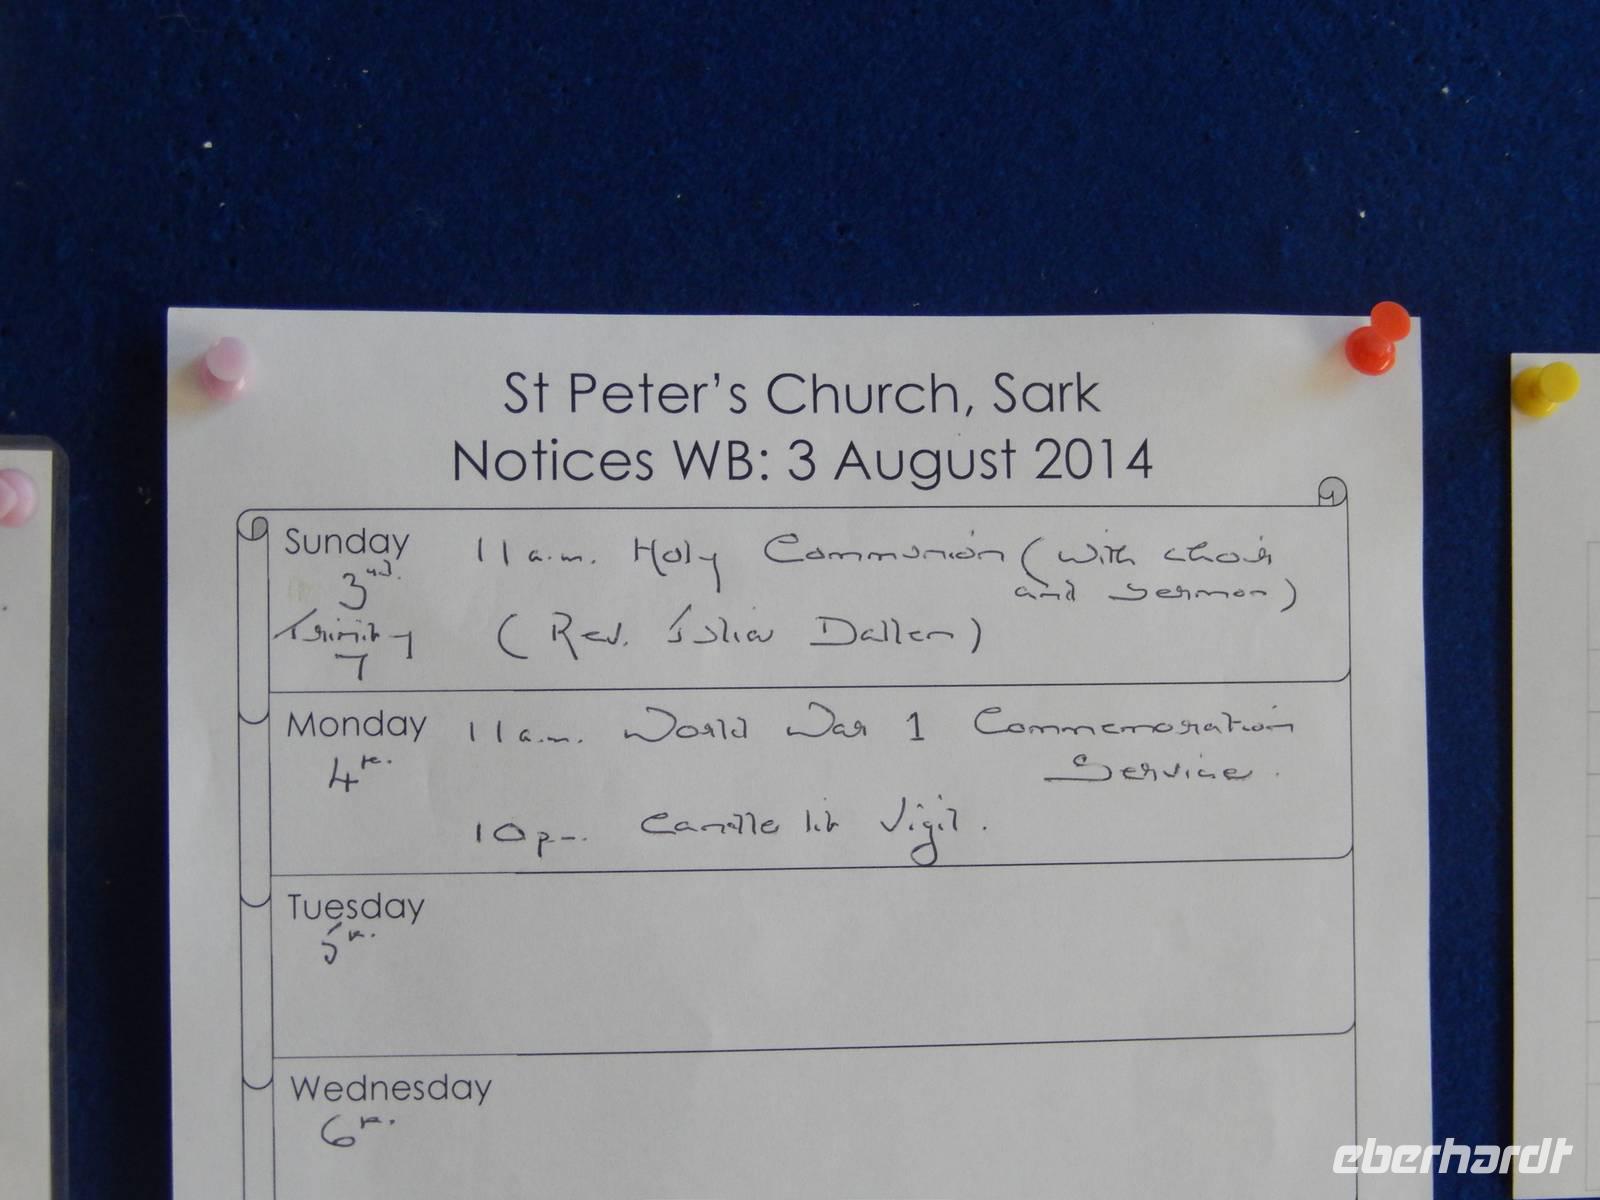 St Peter's Church, Sark
Notices WB: 3 August 2014
Sunday 11 a.m. Holy Communion (with choir
3rd. and sermon)
Trinity (Rev. Dallen)
7
Monday 11 a.m. World War 1 Commemoration
4th. Service.
10 pm. Candle lit Vigil.
Tuesday
5th.
Wednesday
6th.
eberhardt